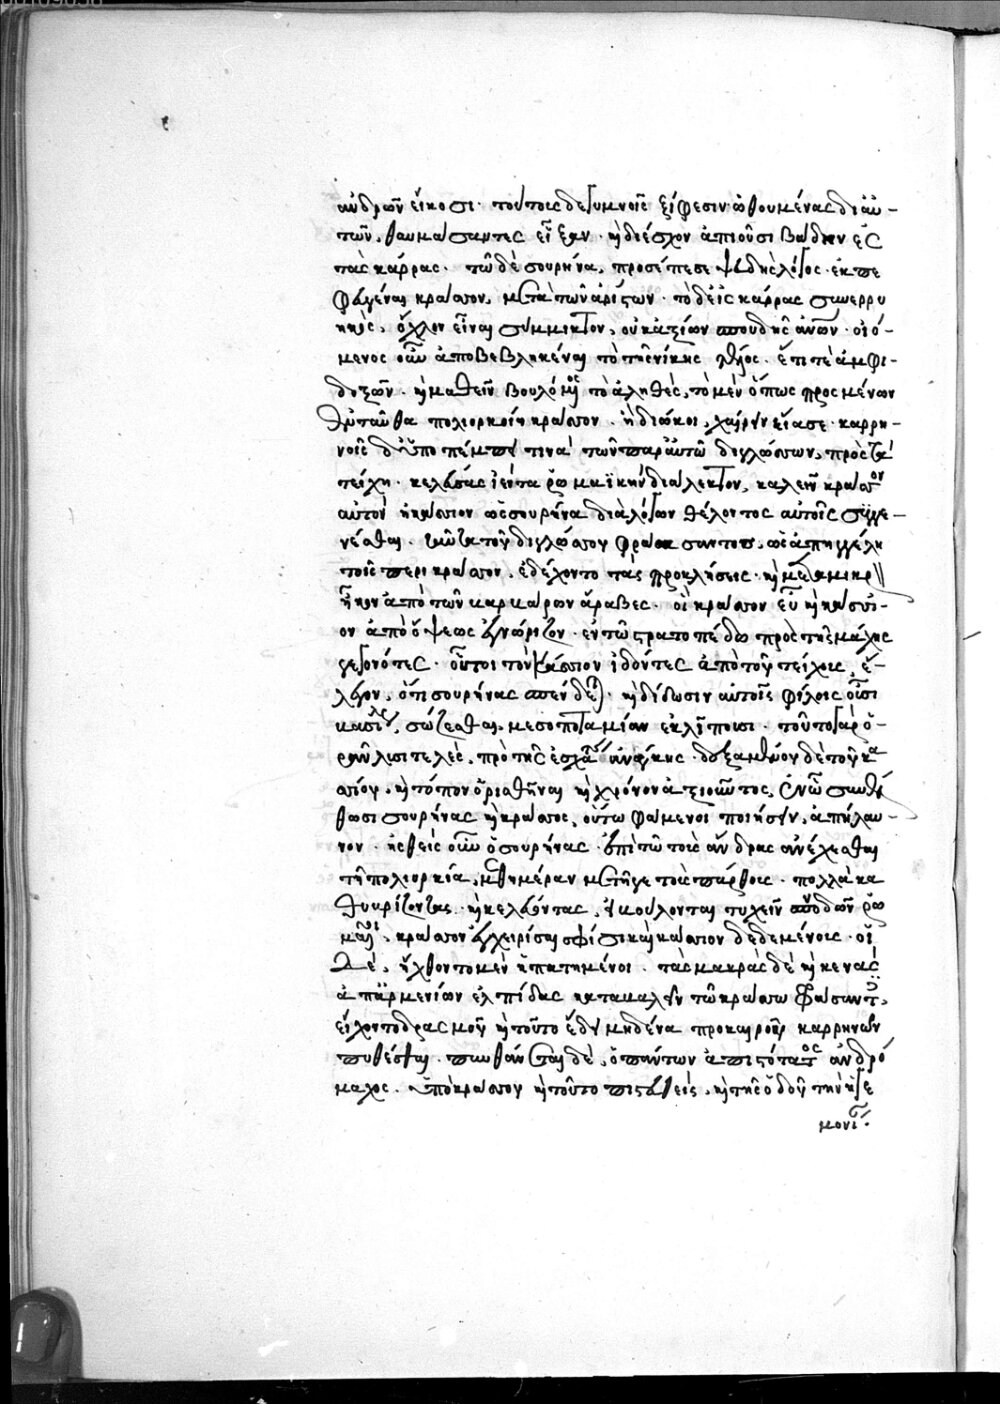 ἀνδρῶν εἴκοσι· τούτους δὲ γυμνοῖς ξίφεσιν ὠθουμένους δι' αὐ-
τῶν, θαυμάσαντες εἴξαν· καὶ διέσχον ἀπιοῦσι βάδην ἐς
τὰς κάρρας· τῷ δὲ σουρήνα, προσέπεσε ψευδὴς λόγος· ἐκπε
φευγέναι κράσσον, μετὰ τῶν ἀρίστων· τὸ δ' εἰς κάρρας συνερρυ
ηκὸς, ὄχλον εἶναι σύμμικτον, οὐκ ἀξίων σπουδῆς ἀνων· οἰό-
μενος οὖν ἀποβεβληκέναι τὸ τῆς νίκης τέλος· ἔτι τε ἀμφι-
δοξῶν· καὶ μαθεῖν βουλόμενος τὸ ἀληθὲς, τὸ μὲν ὅπως προσμένων
ἐνταῦθα πολιορκοίη κράσσον· ἢ διώκοι, χαίρειν εἴασε καρρη-
νοὺς δ' ὑποπέμπει τινὰ τῶν παρ' αὐτῷ διγλώσσων, πρὸς τὰ
τείχη· κελεύσας ἱέντα ῥωμαϊκὴν διάλεκτον, καλεῖν κράσσον
αὐτὸν ἢ κάσσιον ὡς σουρήνα διὰ λόγων θέλοντος αὐτοῖς συγγε-
νέσθαι· ταῦτα τοῦ διγλώσσου φράσαντος, ὡς ἀπηγγέλη
τοῖς περὶ κράσσον, ἐδέχοντο τὰς προκλήσεις· καὶ μετὰ μικρὸν
ἧκον ἀπὸ τῶν βαρβάρων ἄραβες· οἳ κράσσον εὖ καὶ κάσσι-
ον ἀπὸ ὄψεως ἐγνώριζον· ἐν τῷ στρατοπέδῳ πρὸ τῆς μάχης
γεγονότες· οὗτοι τὸν κάσσιον ἰδόντες ἀπὸ τοῦ τείχους, ἔ-
λεγον, ὅτι σουρήνας σπένδεται· καὶ δίδωσιν αὐτοῖς φίλοις οὖσι
βασιλέως, σώζεσθαι, μεσοποταμίαν ἐκλιποῦσι· τοῦτο γὰρ ὁ-
ρᾶν λυσιτελὲς, πρὸ τῆς ἐσχάτης ἀνάγκης· δεξαμένου δὲ τοῦ κα
σσίου, καὶ τόπον ὁρισθῆναι καὶ χρόνον ἀξιοῦντος, ἐν ᾧ συνέλ
θωσι σουρήνας καὶ κράσσος, οὕτω φάμενοι ποιήσειν, ἀπήλαυ-
νον· ἡσθεὶς οὖν ὁ σουρήνας ἐπὶ τῷ τοὺς ἄνδρας ἀνέχεσθαι
τῇ πολιορκίᾳ, μεθημέραν μετῆγε τοὺς πάρθους· πολλὰ κα
θυβρίζοντας· καὶ κελεύοντας, εἰ βούλονται τυχεῖν σπονδῶν ῥω
μαῖοι, κράσσον ἐγχειρίσαι σφίσι καὶ κάσσιον δεδεμένους· οἱ
δὲ, ἤχθοντο μὲν ἠπατημένοι· τὰς μακρὰς δὲ καὶ κενὰς
ἀπ' ἀρμενίων ἐλπίδας καταβαλεῖν τῷ κράσσῳ φήσαντες,
εἴχοντο δρασμοῦ καὶ τοῦτο ἔδει μηδένα προκαιροῦ καρρηνῶν
πυθέσθαι· πυνθάνεται δὲ, ὁ πάντων ἀπιστότατος ἀνδρό
μαχος· ὑπὸ κράσσου καὶ τοῦτο πιστευθεὶς, καὶ τῆς ὁδοῦ τὴν ἡγε
μονίαν·